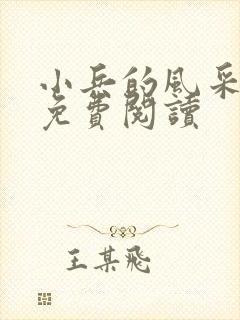 小兵的風采
免費閱讀
王某飛